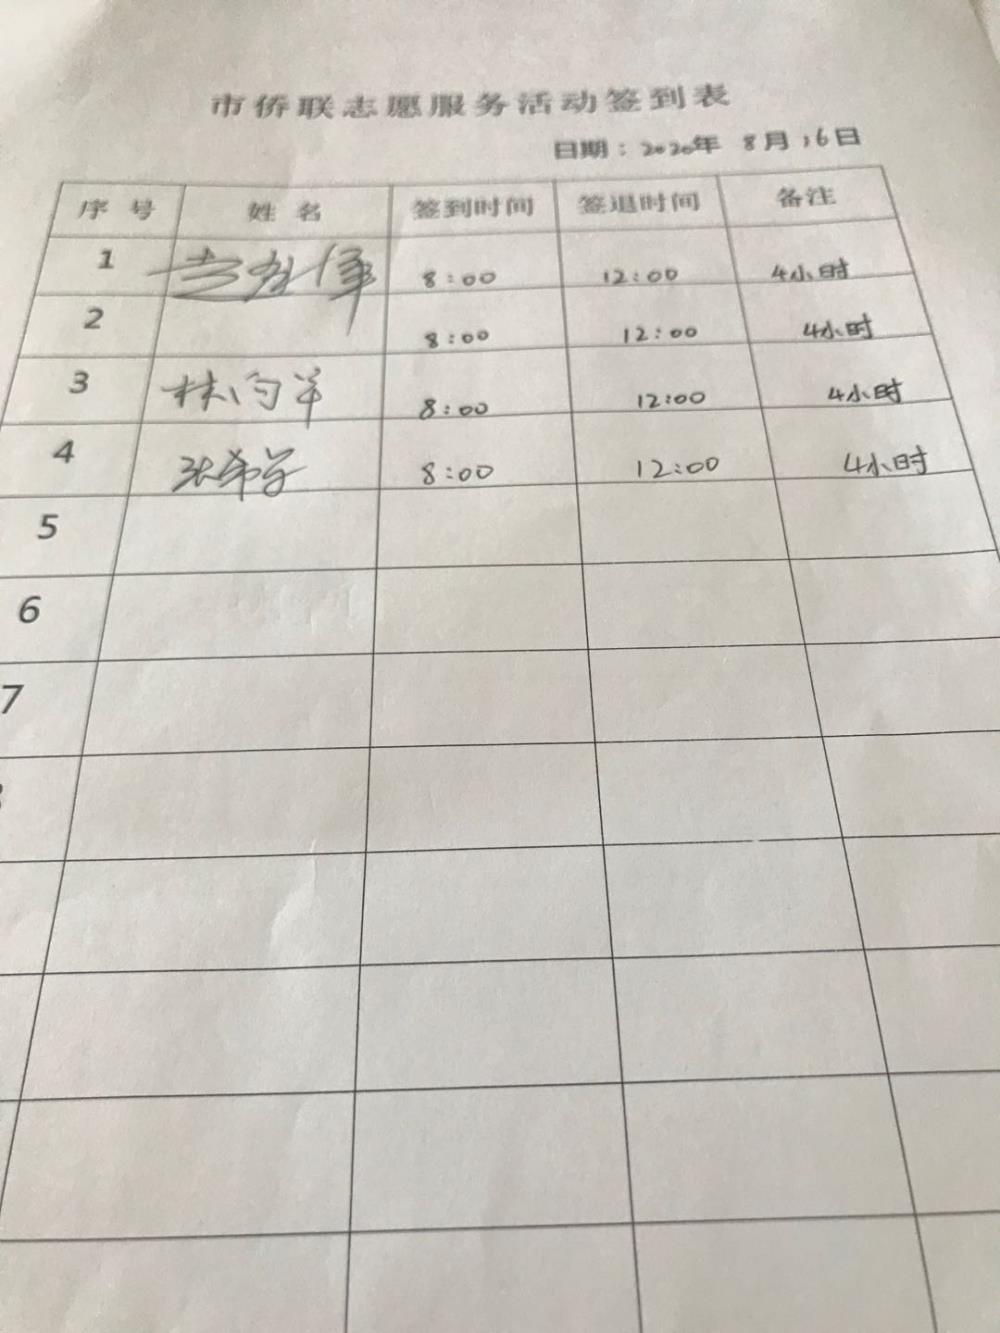 市侨联志愿服务活动签到表
日期：2020年 8月16日
序号 姓名 签到时间 签退时间 备注
1 8:00 12:00 4小时
2 8:00 12:00 4小时
3 8:00 12:00 4小时
4 张希 8:00 12:00 4小时
5
6
7